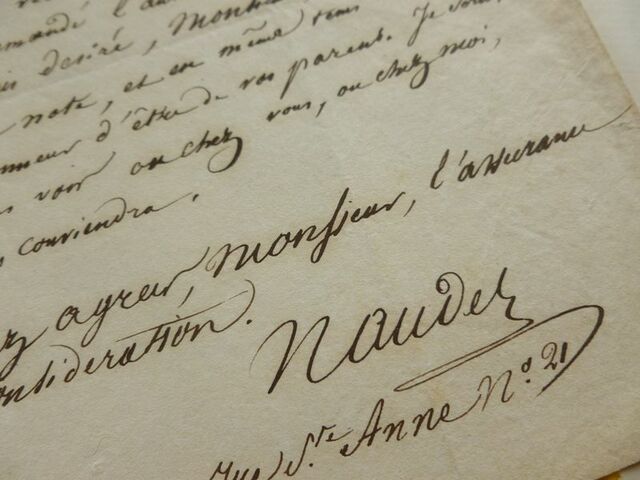 demandé l'au
desiré, Monsieu
note, et en même tems
nneur d'être de vos parens. Je
voir ou chez vous, ou chez moi,
conviendra.
ez agreer, Monsieur, l'assurance
onsideration.
Naudet
rue Ste Anne No. 21